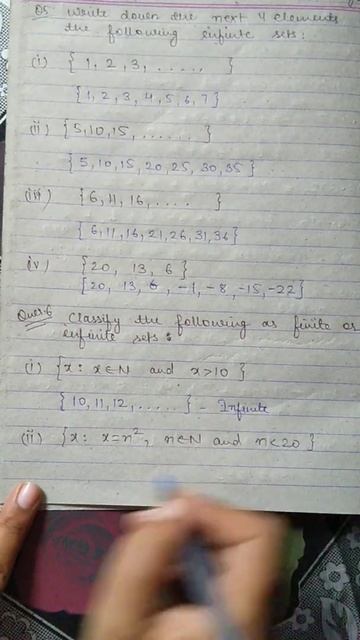 Q5. Write down the next 4 elements
the following infinite sets:
(i) { 1, 2, 3, ..... }
{1, 2, 3, 4, 5, 6, 7}
(ii) {5, 10, 15, ...... }
{5, 10, 15, 20, 25, 30, 35}
(iii) {6, 11, 16, .... }
{6, 11, 16, 21, 26, 31, 36}
(iv) {20, 13, 6 }
{20, 13, 6, -1, -8, -15, -22}
Ques.6 Classify the following as finite or
infinite sets:
(i) {x : x∈N and x>10 }
{10, 11, 12, ..... } - Infinite
(ii) {x: x=n², n∈N and n<20 }